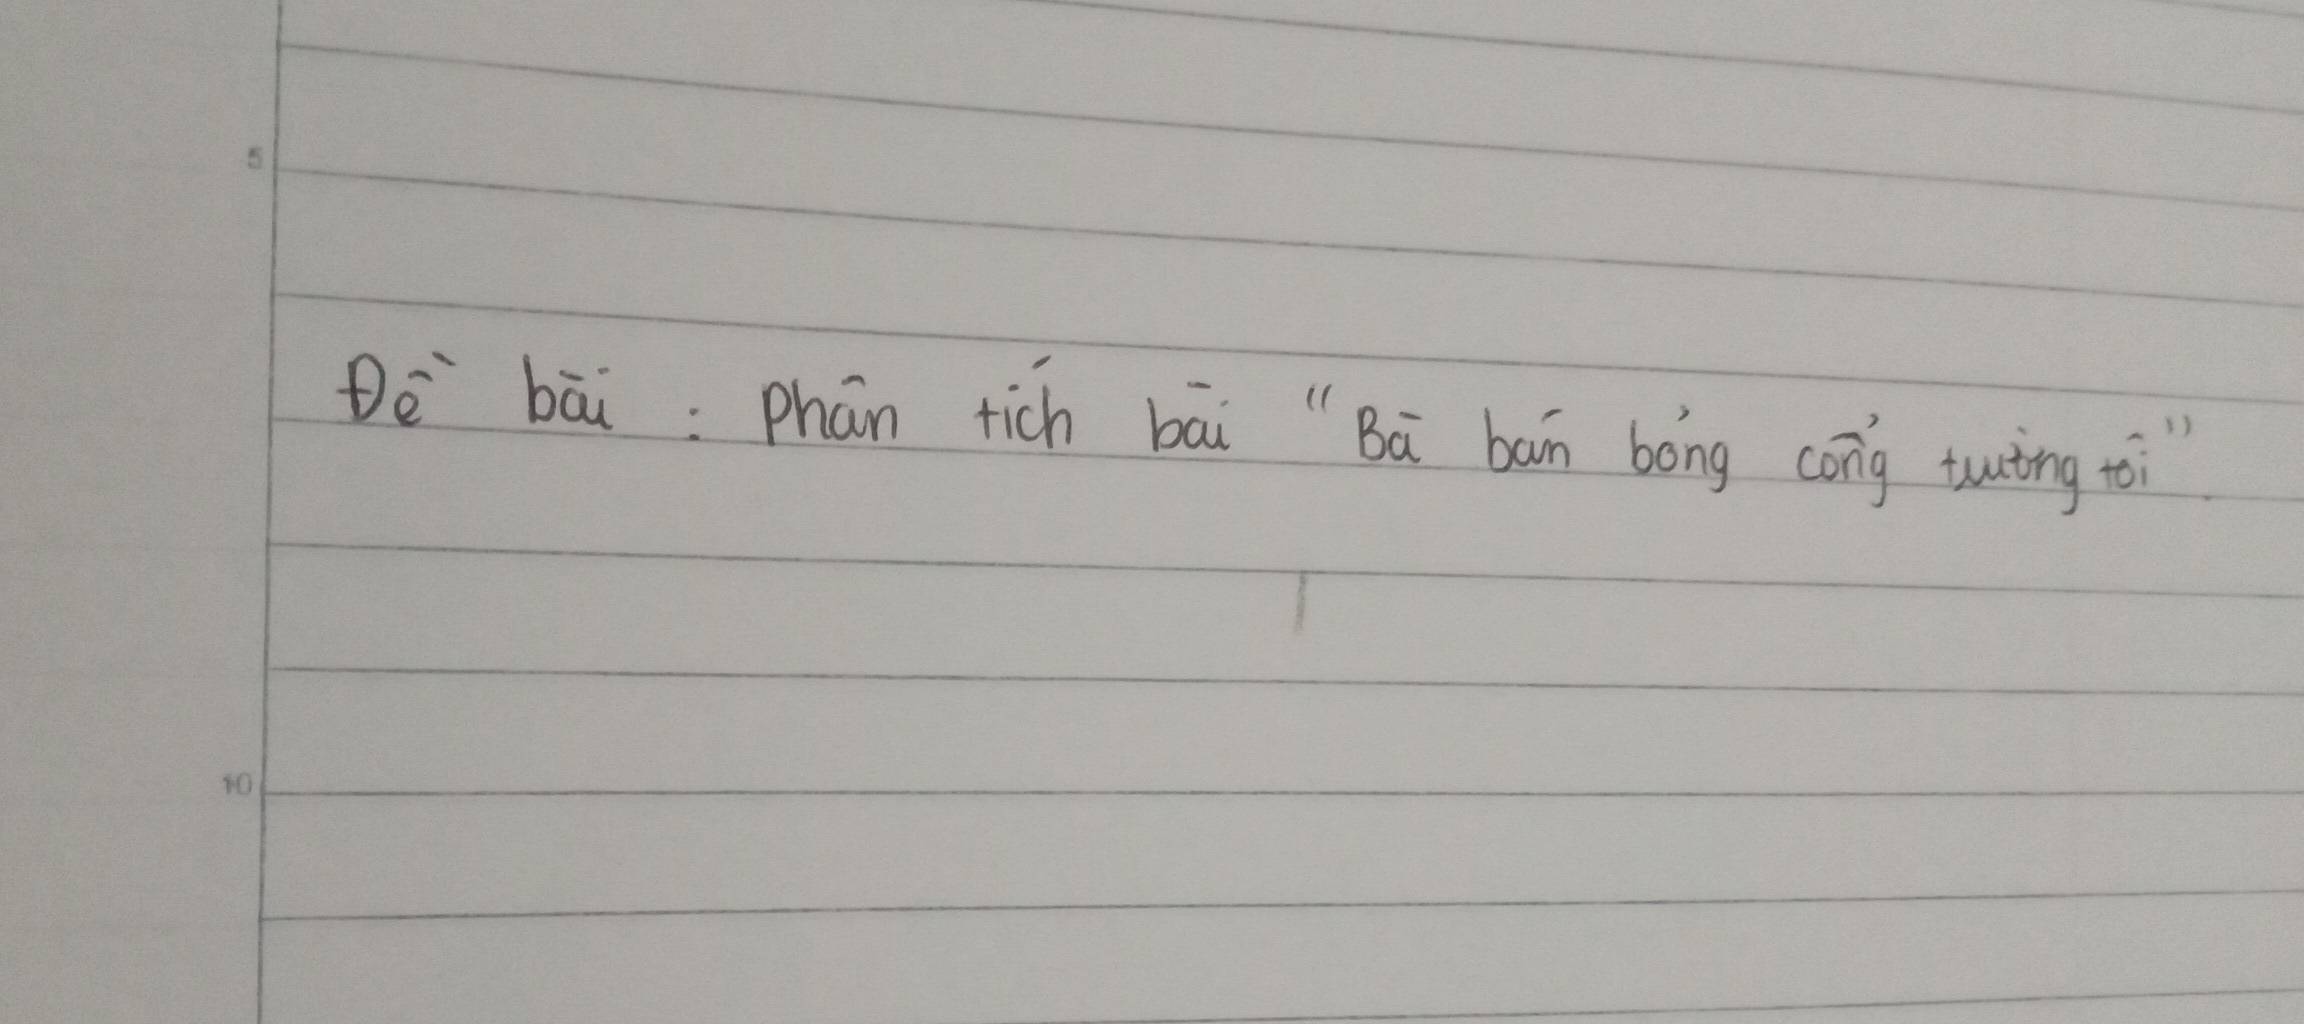 5
Đề bài : Phân tích bài "Bà bán bỏng cổng trường tôi".
10